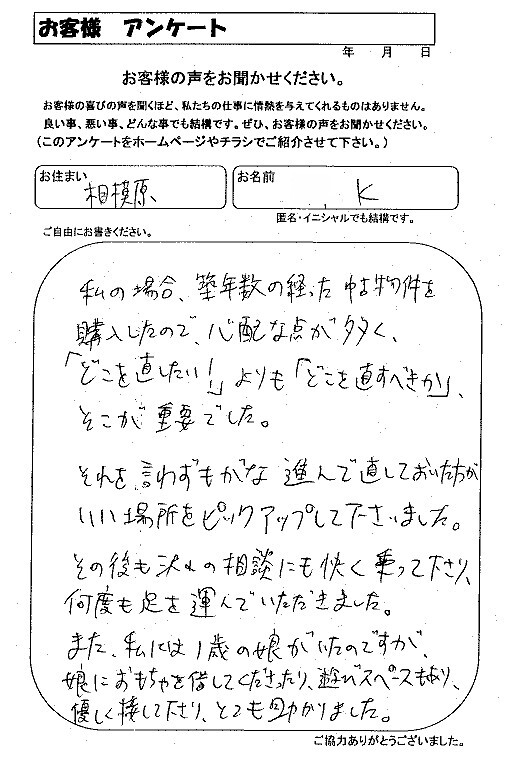 お客様 アンケート
年 月 日
お客様の声をお聞かせください。
お客様の喜びの声を聞くほど、私たちの仕事に情熱を与えてくれるものはありません。
良い事、悪い事、どんな事でも結構です。ぜひ、お客様の声をお聞かせください。
(このアンケートをホームページやチラシでご紹介させて下さい。)
お住まい 相模原
お名前 K
匿名・イニシャルでも結構です。
ご自由にお書きください。
私の場合、築年数の経った中古物件を
購入したので、心配な点が多く、
「どこを直したい!」よりも「どこを直すべきか」、
そこが重要でした。
それを言わずもがな進んで直しておいた方が
いい場所をピックアップして下さいました。
その後も沢山の相談にも快く乗って下さり、
何度も足を運んでいただきました。
また、私には1歳の娘がいたのですが、
娘におもちゃを借してくださったり、遊びスペースもあり、
優しく接して下さり、とても助かりました。
ご協力ありがとうございました。